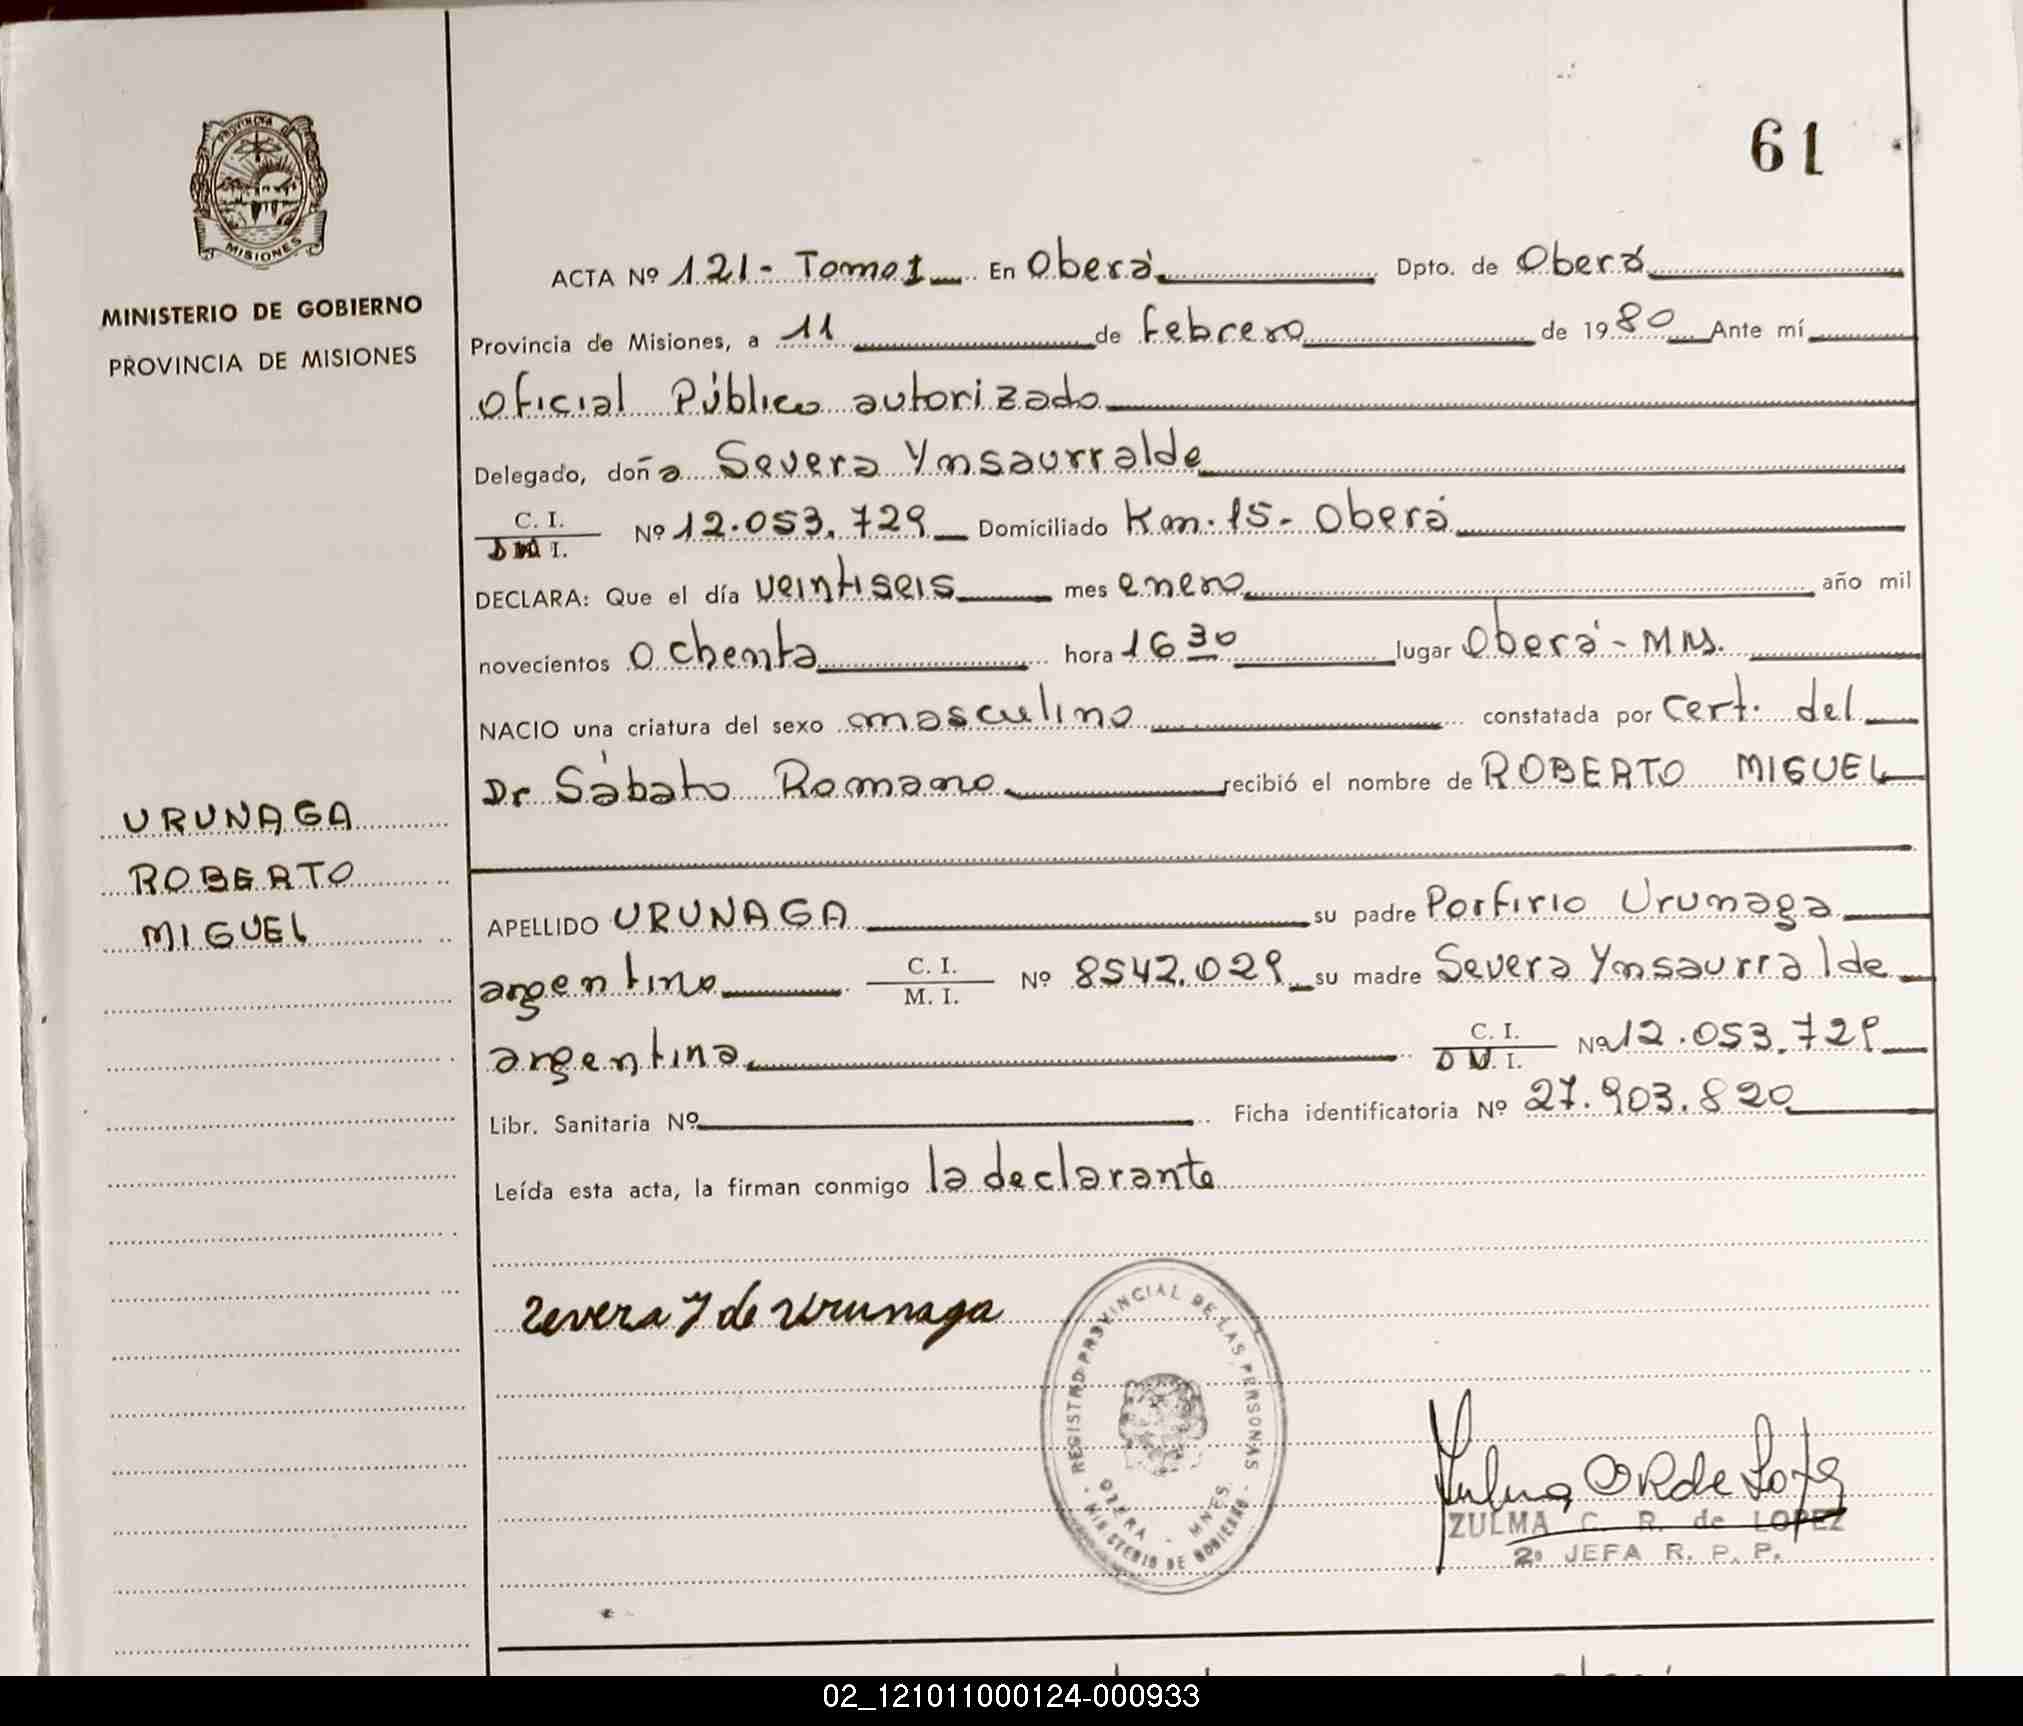 61
PROVINCIA DE
MISIONES
MINISTERIO DE GOBIERNO
PROVINCIA DE MISIONES
URUNAGA
ROBERTO
MIGUEL
ACTA Nº 121 - Tomo 1 En Oberá Dpto. de Oberá
Provincia de Misiones, a 11 de Febrero de 1980 Ante mí
Oficial Público autorizado
Delegado, doña Severa Ynsaurralde
C. I.
D N I. Nº 12.053.729 Domiciliado Km. 15 - Oberá
DECLARA: Que el día veintiseis mes enero año mil
novecientos ochenta hora 16 30 lugar Oberá - Mns.
NACIO una criatura del sexo masculino constatada por cert. del
Dr Sábato Romano recibió el nombre de ROBERTO MIGUEL
APELLIDO URUNAGA su padre Porfirio Urunaga
argentino C. I. M. I. Nº 8542.029 su madre Severa Ynsaurralde
argentina C. I. D N. I. Nº 12.053.729
Libr. Sanitaria Nº Ficha identificatoria Nº 27.903.820
Leída esta acta, la firman conmigo la declarante
Severa Y de Urunaga
REGISTRO PROVINCIAL DE LAS PERSONAS
OBERA - MNES.
MINISTERIO DE GOBIERNO
ZULMA C. R. de LOPEZ
2º JEFA R. P. P.
02_121011000124-000933